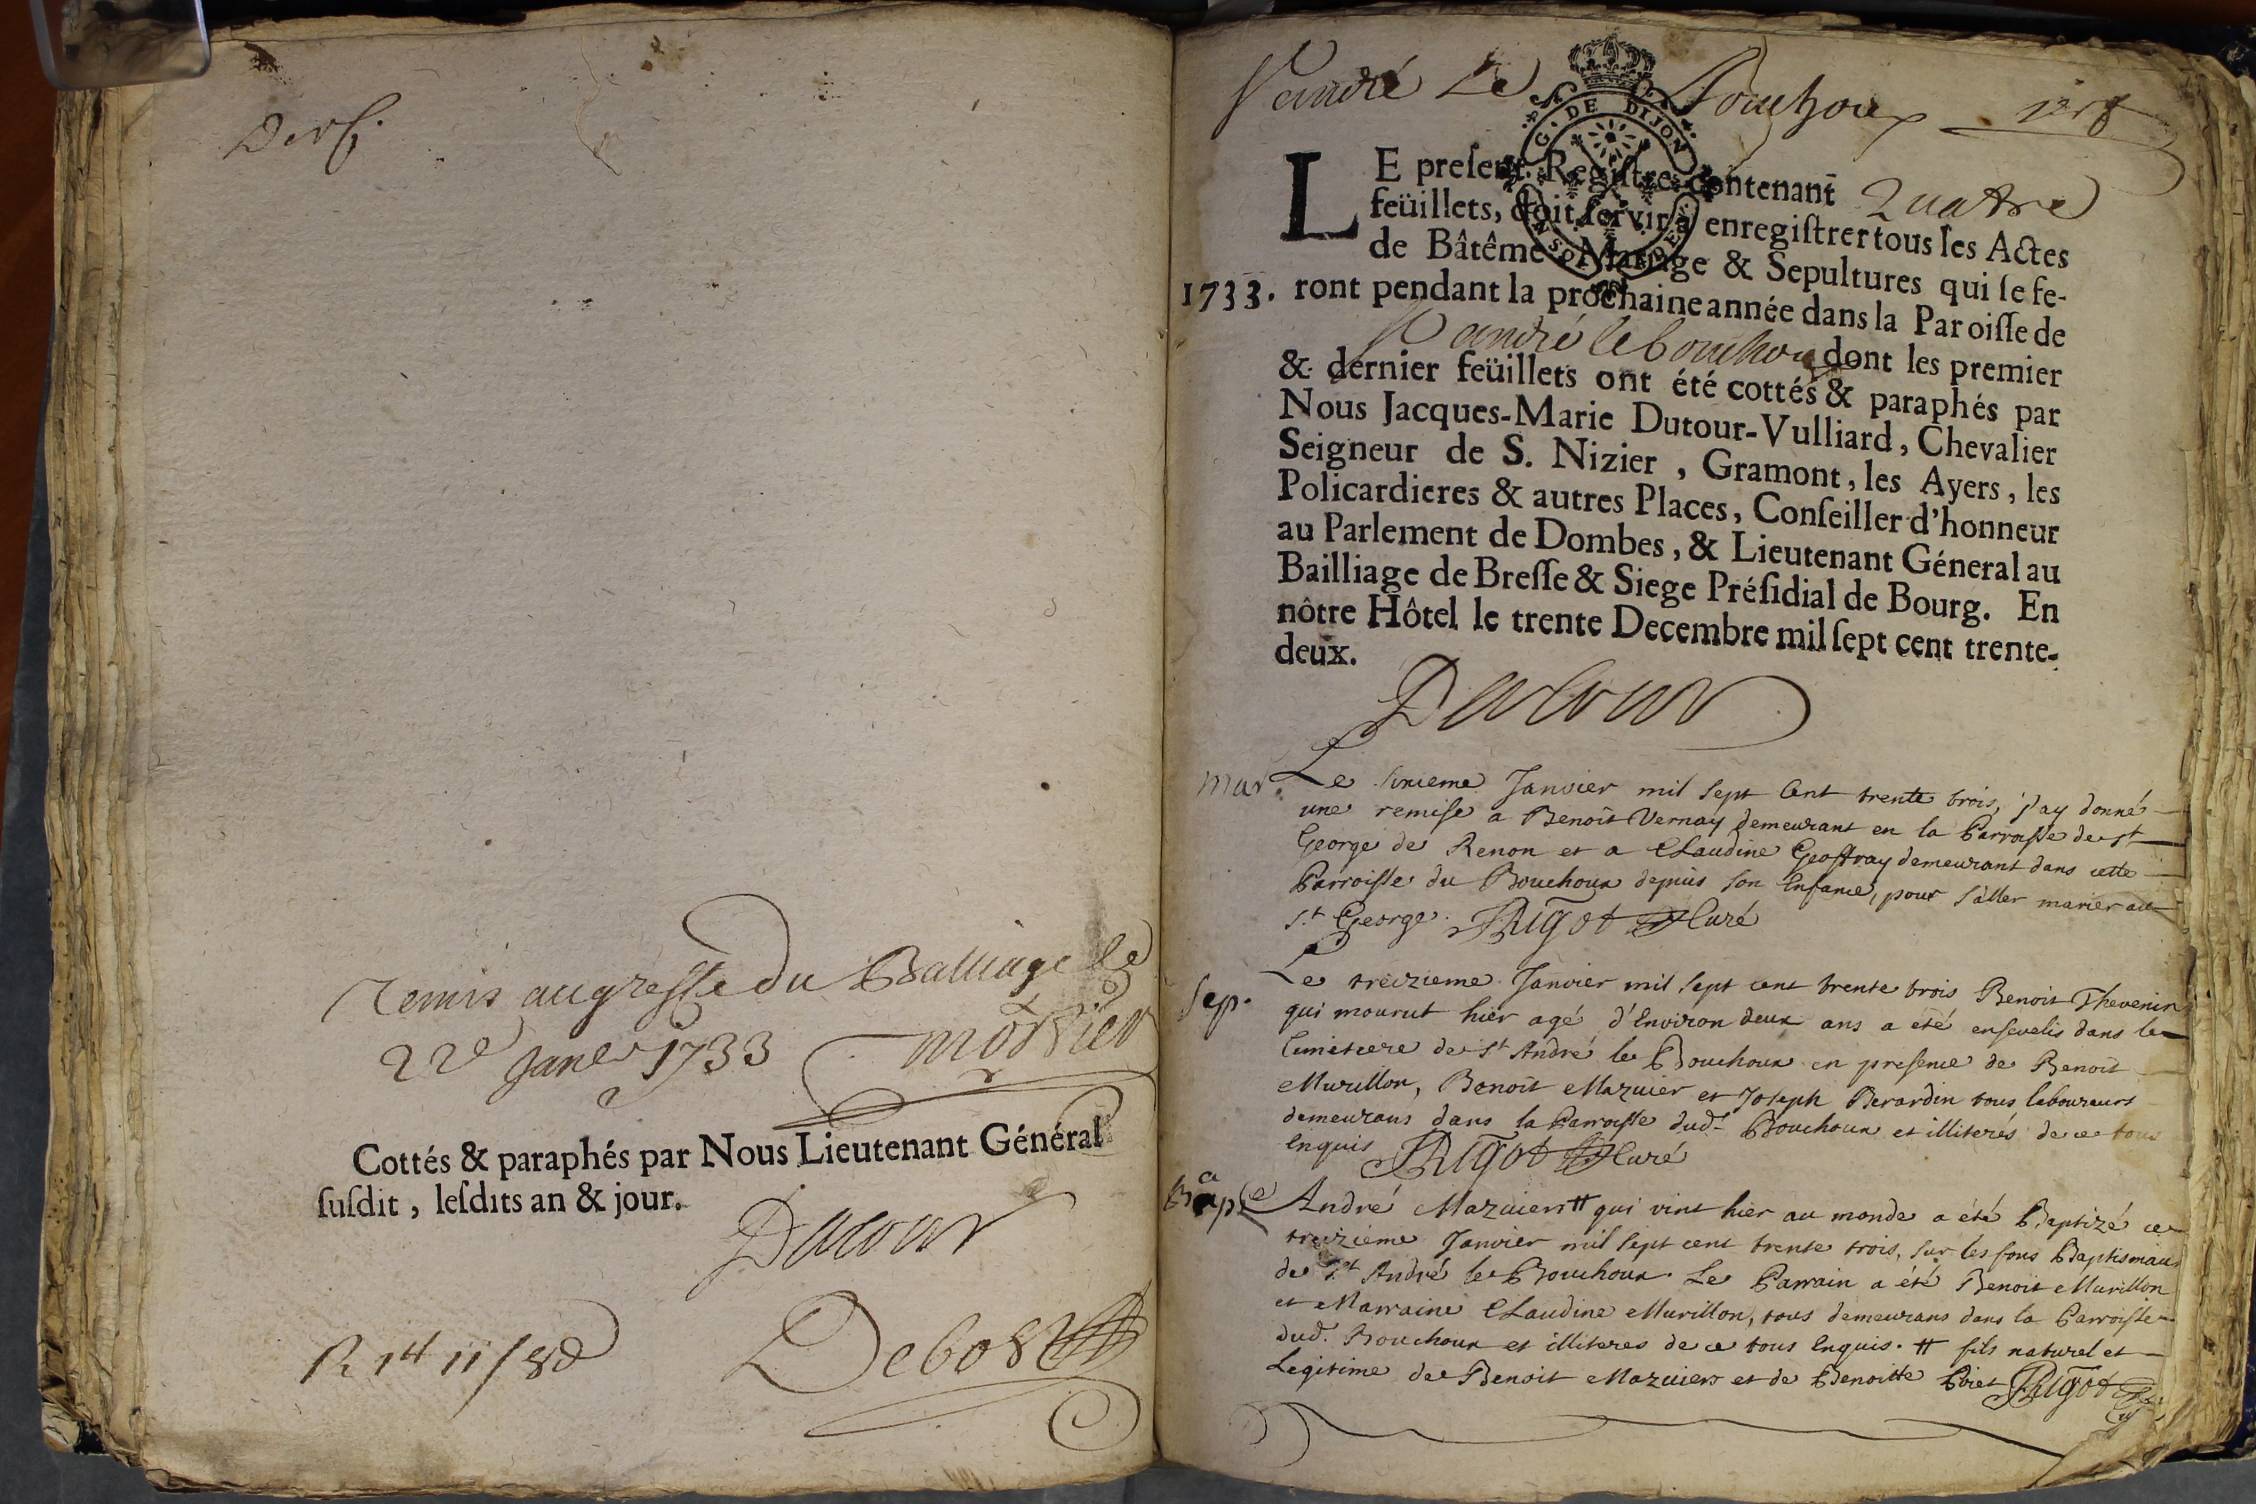 Derf.
Remis au greffe du Balliage le
22e Janer 1733
Cottés & paraphés par Nous Lieutenant Général
ſuſdit, leſdits an & jour.
Dutour
Debost
St andré Le Bouchoux
G. DE DIJON
LE preſent Regiſtre contenant Quatre
feüillets, doit ſervir à enregiſtrer tous les Actes
de Bâtême, Mariage & Sepultures qui ſe fe-
1733. ront pendant la prochaine année dans la Paroiſſe de
St andré le bouchoux dont les premier
& dernier feüillets ont été cottés & paraphés par
Nous Jacques-Marie Dutour-Vulliard, Chevalier
Seigneur de S. Nizier, Gramont, les Ayers, les
Policardieres & autres Places, Conſeiller d'honneur
au Parlement de Dombes, & Lieutenant Géneral au
Bailliage de Breſſe & Siege Préſidial de Bourg. En
nôtre Hôtel le trente Decembre mil ſept cent trente-
deux.
Dutour
mar. Le Janvier mil sept Cent trente trois, j'ay donné
une remise a Benoît Vernay demeurant en la Parroisse de st
George de Renon et a Claudine Geoffray demeurant dans cette
Parroisse du Bouchoux depuis son Enfance, pour s'aller marier au
st George. Rigot Curé
Sep. Le treizieme Janvier mil sept cent trente trois Benoit Thevenin
qui mourut hier agé d'Environ deux ans a eté ensevelis dans le
Cimetiere de St André le Bouchoux en presence de Benoît
Murillon, Benoît Mazuier et Joseph Berardin tous laboureurs
demeurans dans la Parroisse dud. Bouchoux et illiterés de ce tous
Enquis Rigot Curé
Bap. André Mazuier # qui vint hier au monde a été Baptizé ce
treizieme Janvier mil sept cent trente trois, sur les fons Baptismaux
de St André le Bouchoux. Le Parrain a été Benoit Murillon
et Marraine Claudine Murillon, tous demeurans dans la Parroisse
dud. Bouchoux et illiteres de ce tous Enquis. # fils naturel et
Legitime de Benoit Mazuier et de Benoitte Rigot